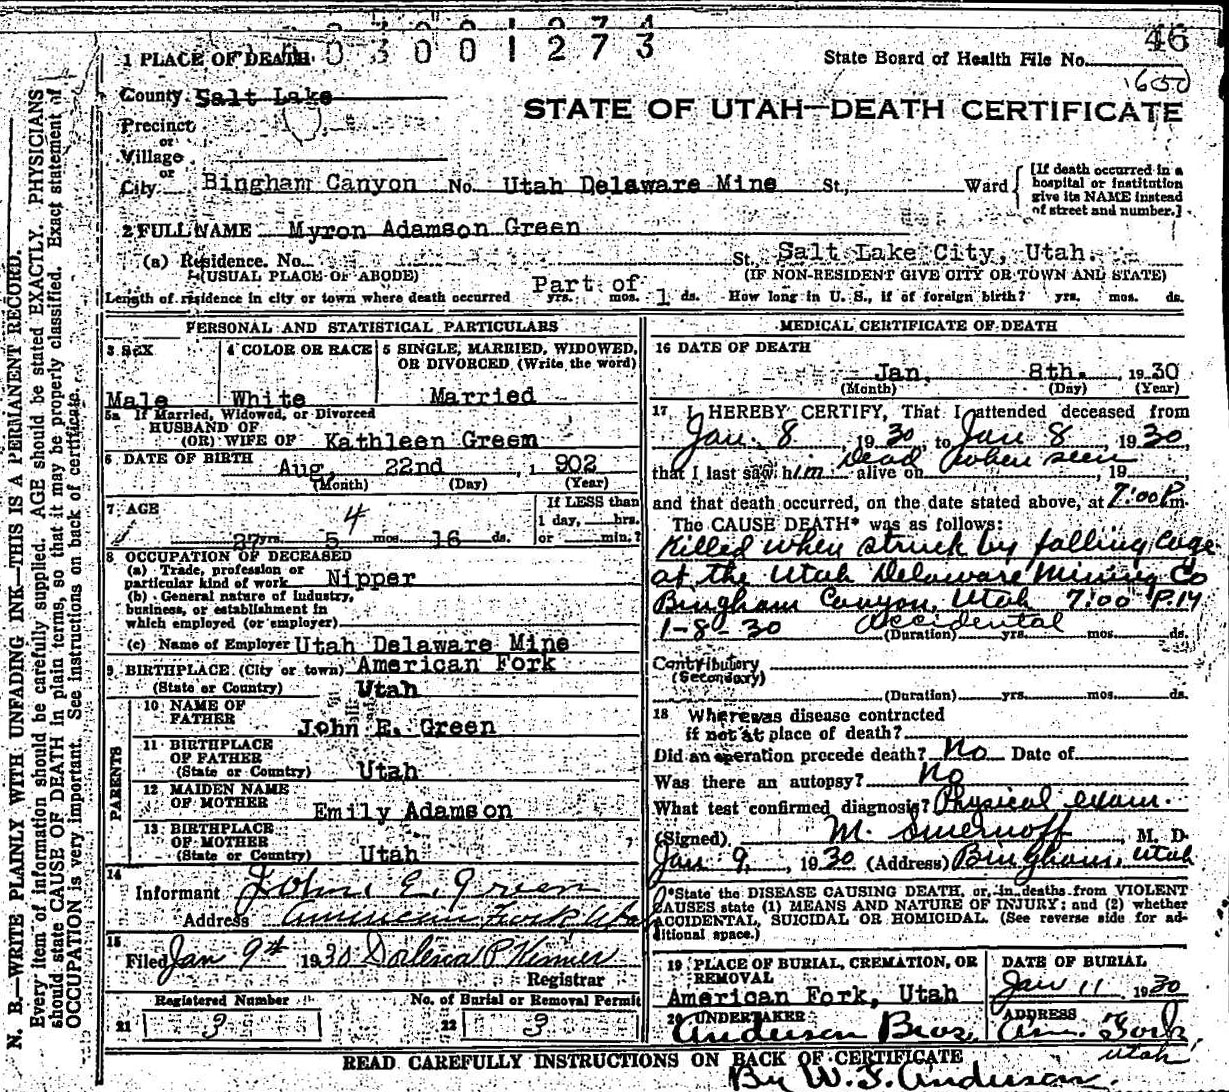 0 3 0 0 1 2 7 3
46
1 PLACE OF DEATH
State Board of Health File No.
County Salt Lake
STATE OF UTAH—DEATH CERTIFICATE
Precinct
or
Village
or
City Bingham Canyon No. Utah Delaware Mine St., Ward
[If death occurred in a
hospital or institution
give its NAME instead
of street and number.]
2 FULL NAME Myron Adamson Green
(a) Residence. No. St. Salt Lake City, Utah.
(USUAL PLACE OF ABODE) (IF NON-RESIDENT GIVE CITY OR TOWN AND STATE)
Length of residence in city or town where death occurred Part of yrs. mos. 1 ds. How long in U. S., if of foreign birth? yrs. mos. ds.
PERSONAL AND STATISTICAL PARTICULARS
3 SEX
Male
4 COLOR OR RACE
White
5 SINGLE, MARRIED, WIDOWED,
OR DIVORCED (Write the word)
Married
5a If Married, Widowed, or Divorced
HUSBAND OF
(OR) WIFE OF Kathleen Green
6 DATE OF BIRTH Aug. 22nd , 1902
(Month) (Day) (Year)
7 AGE
4
27 yrs. 5 mos. 16 ds.
If LESS than
1 day, hrs.
or min.?
8 OCCUPATION OF DECEASED
(a) Trade, profession or
particular kind of work Nipper
(b) General nature of industry,
business, or establishment in
which employed (or employer)
(c) Name of Employer Utah Delaware Mine
9 BIRTHPLACE (City or town) American Fork
(State or Country) Utah
PARENTS
10 NAME OF
FATHER
John E. Green
11 BIRTHPLACE
OF FATHER
(State or Country) Utah
12 MAIDEN NAME
OF MOTHER
Emily Adamson
13 BIRTHPLACE
OF MOTHER
(State or Country) Utah
14
Informant John E. Green
Address American Fork Utah
15
Filed Jan 9th 1930
Registrar
Registered Number
21 3
No. of Burial or Removal Permit
22 3
MEDICAL CERTIFICATE OF DEATH
16 DATE OF DEATH
Jan. 8th. , 1930
(Month) (Day) (Year)
17 I HEREBY CERTIFY, That I attended deceased from
Jan. 8 , 1930, to Jan 8 , 1930,
that I last saw him Dead alive on when seen , 19
and that death occurred, on the date stated above, at 7:00 P.m.
The CAUSE DEATH* was as follows:
Killed when struck by falling Cage
at the Utah Delaware Mining Co
Bingham Canyon, Utah 7:00 P.M
1-8-30 Accidental
(Duration) yrs. mos. ds.
Contributory
(Secondary)
(Duration) yrs. mos. ds.
18 Where was disease contracted
if not at place of death?
Did an operation precede death? No Date of
Was there an autopsy? No
What test confirmed diagnosis? Physical exam.
(Signed) M. Smernoff M. D.
Jan 9, , 1930 (Address) Bingham, Utah
*State the DISEASE CAUSING DEATH, or, in deaths from VIOLENT
CAUSES state (1) MEANS AND NATURE OF INJURY: and (2) whether
ACCIDENTAL, SUICIDAL OR HOMICIDAL. (See reverse side for ad-
ditional space.)
19 PLACE OF BURIAL, CREMATION, OR
REMOVAL
American Fork, Utah
DATE OF BURIAL
Jan 11 1930
20 UNDERTAKER
Anderson Bros.
ADDRESS
Am. Fork
Utah
READ CAREFULLY INSTRUCTIONS ON BACK OF CERTIFICATE
By W. F. Anderson.
N. B.—WRITE PLAINLY WITH UNFADING INK—THIS IS A PERMANENT RECORD.
Every item of information should be carefully supplied. AGE should be stated EXACTLY. PHYSICIANS
should state CAUSE OF DEATH in plain terms, so that it may be properly classified. Exact statement of
OCCUPATION is very important. See instructions on back of certificate.